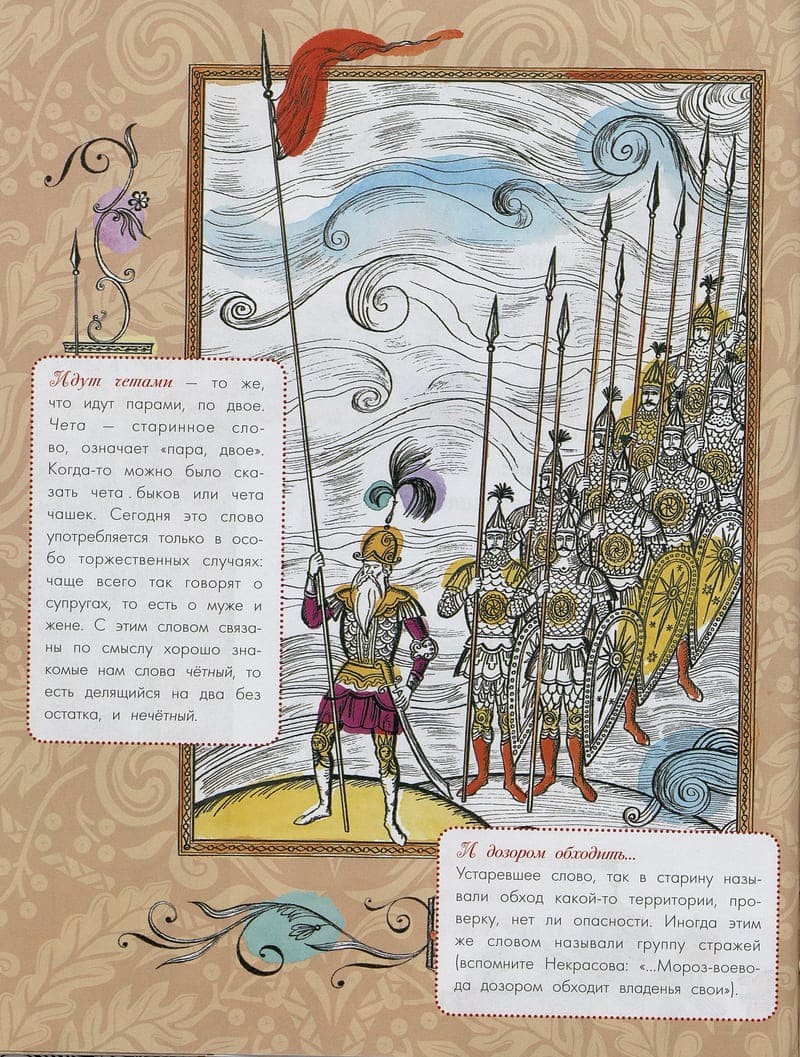 Идут четами — то же,
что идут парами, по двое.
Чета — старинное сло-
во, означает «пара, двое».
Когда-то можно было ска-
зать чета . быков или чета
чашек. Сегодня это слово
употребляется только в осо-
бо торжественных случаях:
чаще всего так говорят о
супругах, то есть о муже и
жене. С этим словом связа-
ны по смыслу хорошо зна-
комые нам слова чётный, то
есть делящийся на два без
остатка, и нечётный.
И дозором обходить...
Устаревшее слово, так в старину назы-
вали обход какой-то территории, про-
верку, нет ли опасности. Иногда этим
же словом называли группу стражей
(вспомните Некрасова: «...Мороз-воево-
да дозором обходит владенья свои»).